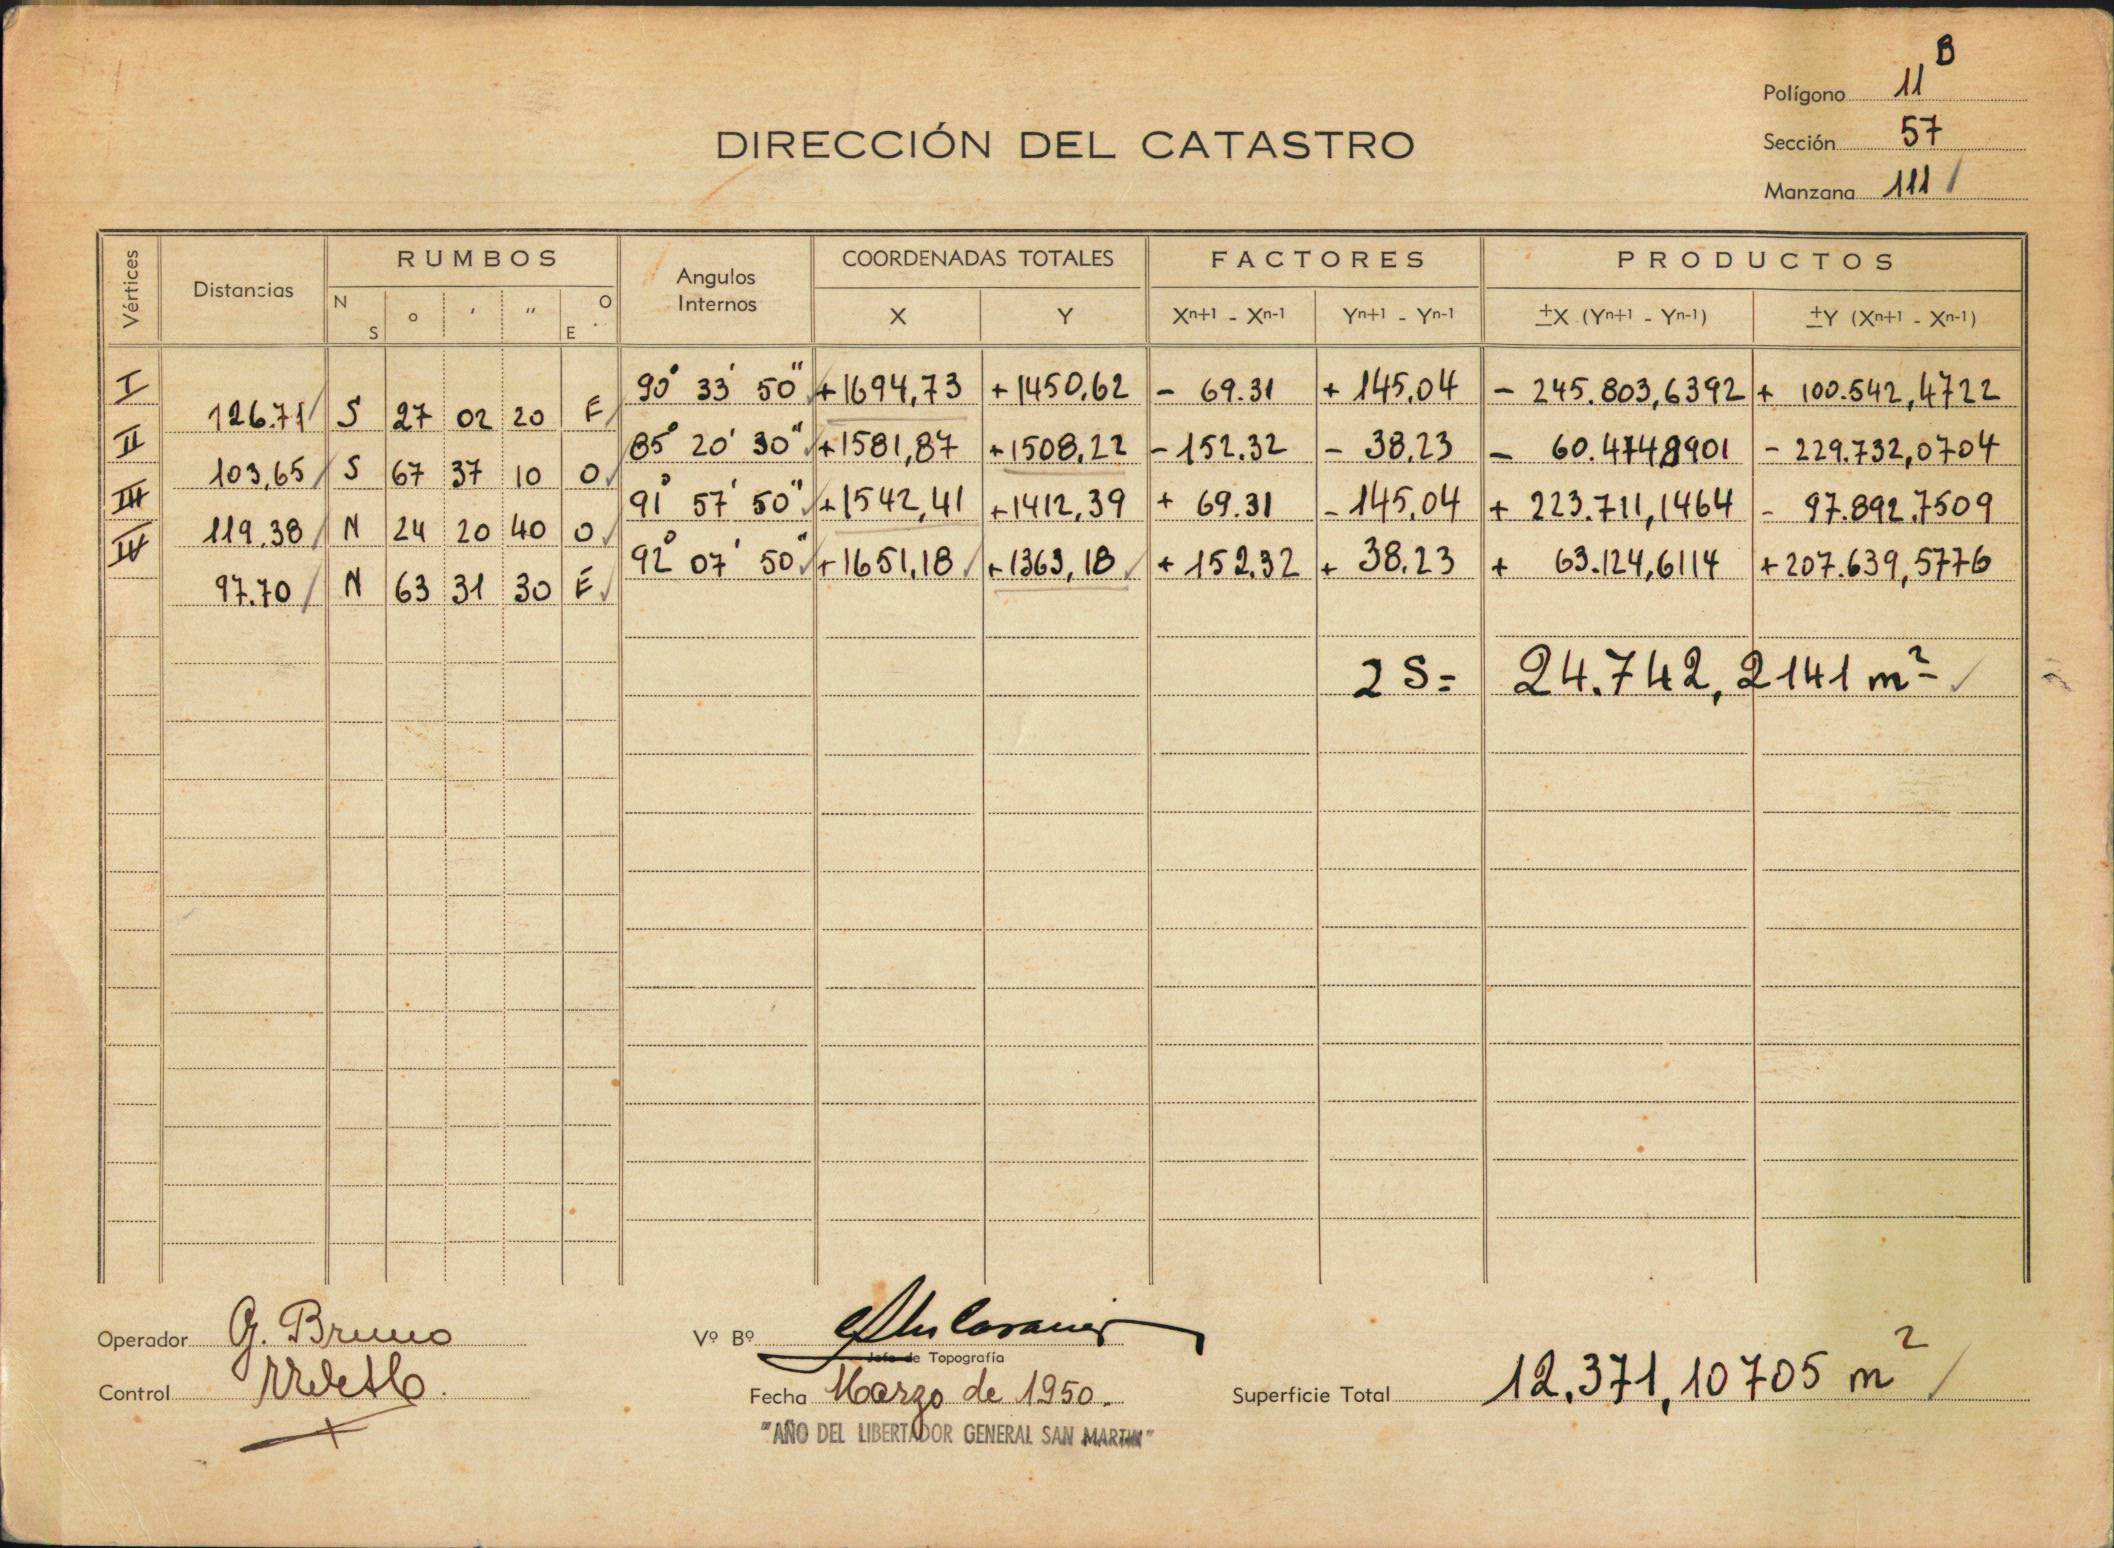 Polígono 11 B
Sección 57
Manzana 111
DIRECCIÓN DEL CATASTRO
Vértices Distancias RUMBOS Angulos Internos COORDENADAS TOTALES FACTORES PRODUCTOS
N S ° ' " O E X Y Xn+1 - Xn-1 Yn+1 - Yn-1 ±X (Yn+1 - Yn-1) ±Y (Xn+1 - Xn-1)
I 90° 33' 50" +1694,73 +1450,62 - 69.31 + 145,04 - 245.803,6392 + 100.542,4722
126.71 S 27 02 20 E
II 85° 20' 30" +1581,87 +1508,22 -152.32 - 38,23 - 60.474,8901 - 229.732,0704
103,65 S 67 37 10 O
III 91° 57' 50" +1542,41 +1412,39 + 69.31 -145,04 + 223.711,1464 - 97.892,7509
119.38 N 24 20 40 O
IV 92° 07' 50" +1651,18 +1363,18 + 152.32 + 38.23 + 63.124,6114 +207.639,5776
97.70 N 63 31 30 E
2 S= 24.742,2141 m²
Operador G. Bruno
Vº Bº
Jefe de Topografía
Control
Fecha Marzo de 1950.
Superficie Total 12.371,10705 m²
"AÑO DEL LIBERTADOR GENERAL SAN MARTIN"